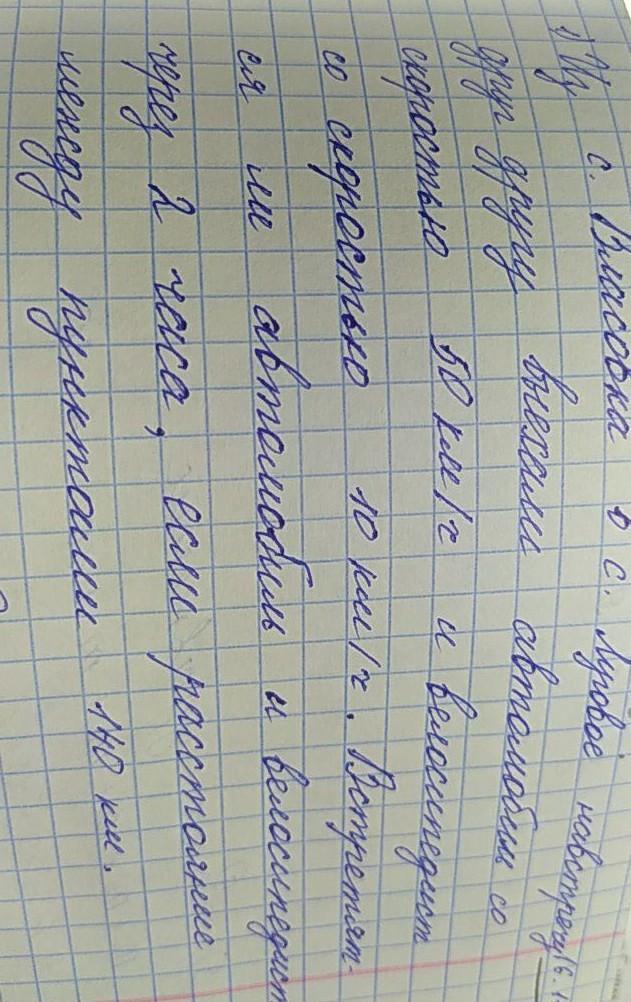 1) Из с. Власовка в с. Луговое навстречу
друг другу выехали автомобиль со
скоростью 50 км/ч и велосипедист
со скоростью 10 км/ч. Встретят-
ся ли автомобиль и велосипедист
через 2 часа, если расстояние
между пунктами 140 км.